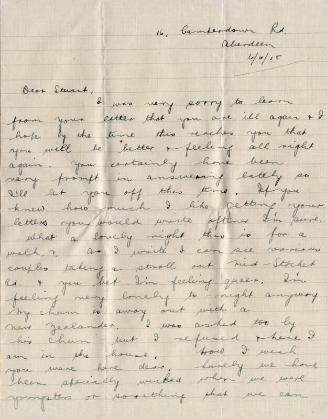 16, Camperdown Rd.
Aberdeen
4/6/15
Dear Stuart,
I was very sorry to learn
from your letter that you are ill again & I
hope by the time this reaches you that
you will be better & feeling all right
again. You certainly have been
very prompt in answering lately so
I'll let you off this time. If you
knew how much I like getting your
letters you would write oftener I'm sure.
What a lovely night this is for a
walk, & as I write I can see various
couples taking a stroll out Mid-Stocket
Rd & you bet I'm feeling queer. I'm
feeling very lonely to-night anyway
my chum is away out with a
New Zealander. I was asked too by
his chum but I refused & here I
am in the house. How I wish
you were here dear. Surely we have
been specially wicked when we were
youngsters or something that we can